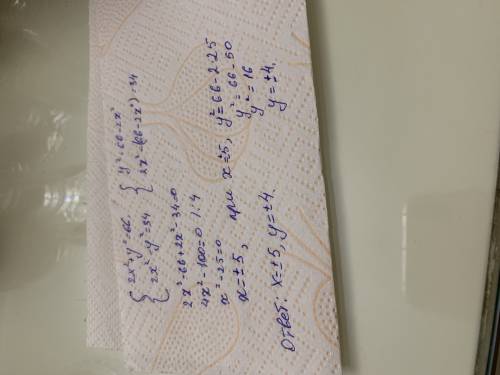 { 2x²+y²=66. { y²=66-2x²
{ 2x²-y²=34 { 2x²-(66-2x²)=34
2x²-66+2x²-34=0
4x²-100=0 /:4
x²-25=0
x=±5, при x=±5, y²=66-2·25
y²=66-50
y²=16
y=±4.
Ответ: x=±5, y=±4.